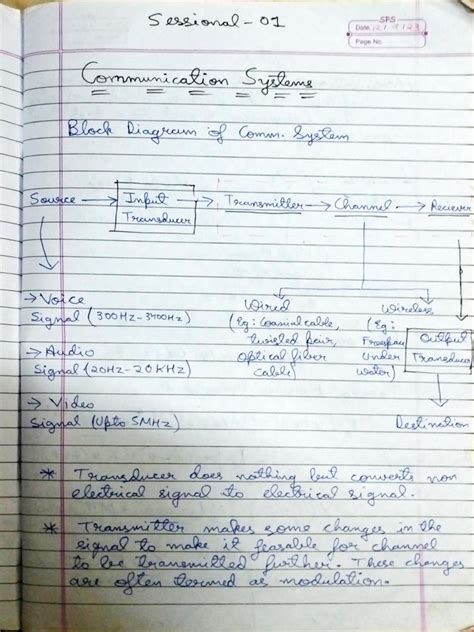 Sessional-01
SPS
Date: 12/9/23
Page No.
Communication Systems
Block Diagram of Comm. System
Source → Input Transducer → Transmitter → Channel → Reciever
→ Voice
Signal (300Hz-3400Hz)
→ Audio
Signal (20Hz-20KHz)
→ Video
Signal (Upto 5MHz)
Wired
(Eg: Coaxial cable,
twisted pair,
Optical fiber
cable)
Wireless
(Eg:
Under
water)
Output
Transducer
Destination
* Transducer does nothing but converts non
electrical signal to electrical signal.
* Transmitter makes some changes in the
signal to make it feasable for channel
to be transmitted further. These changes
are often termed as modulation.